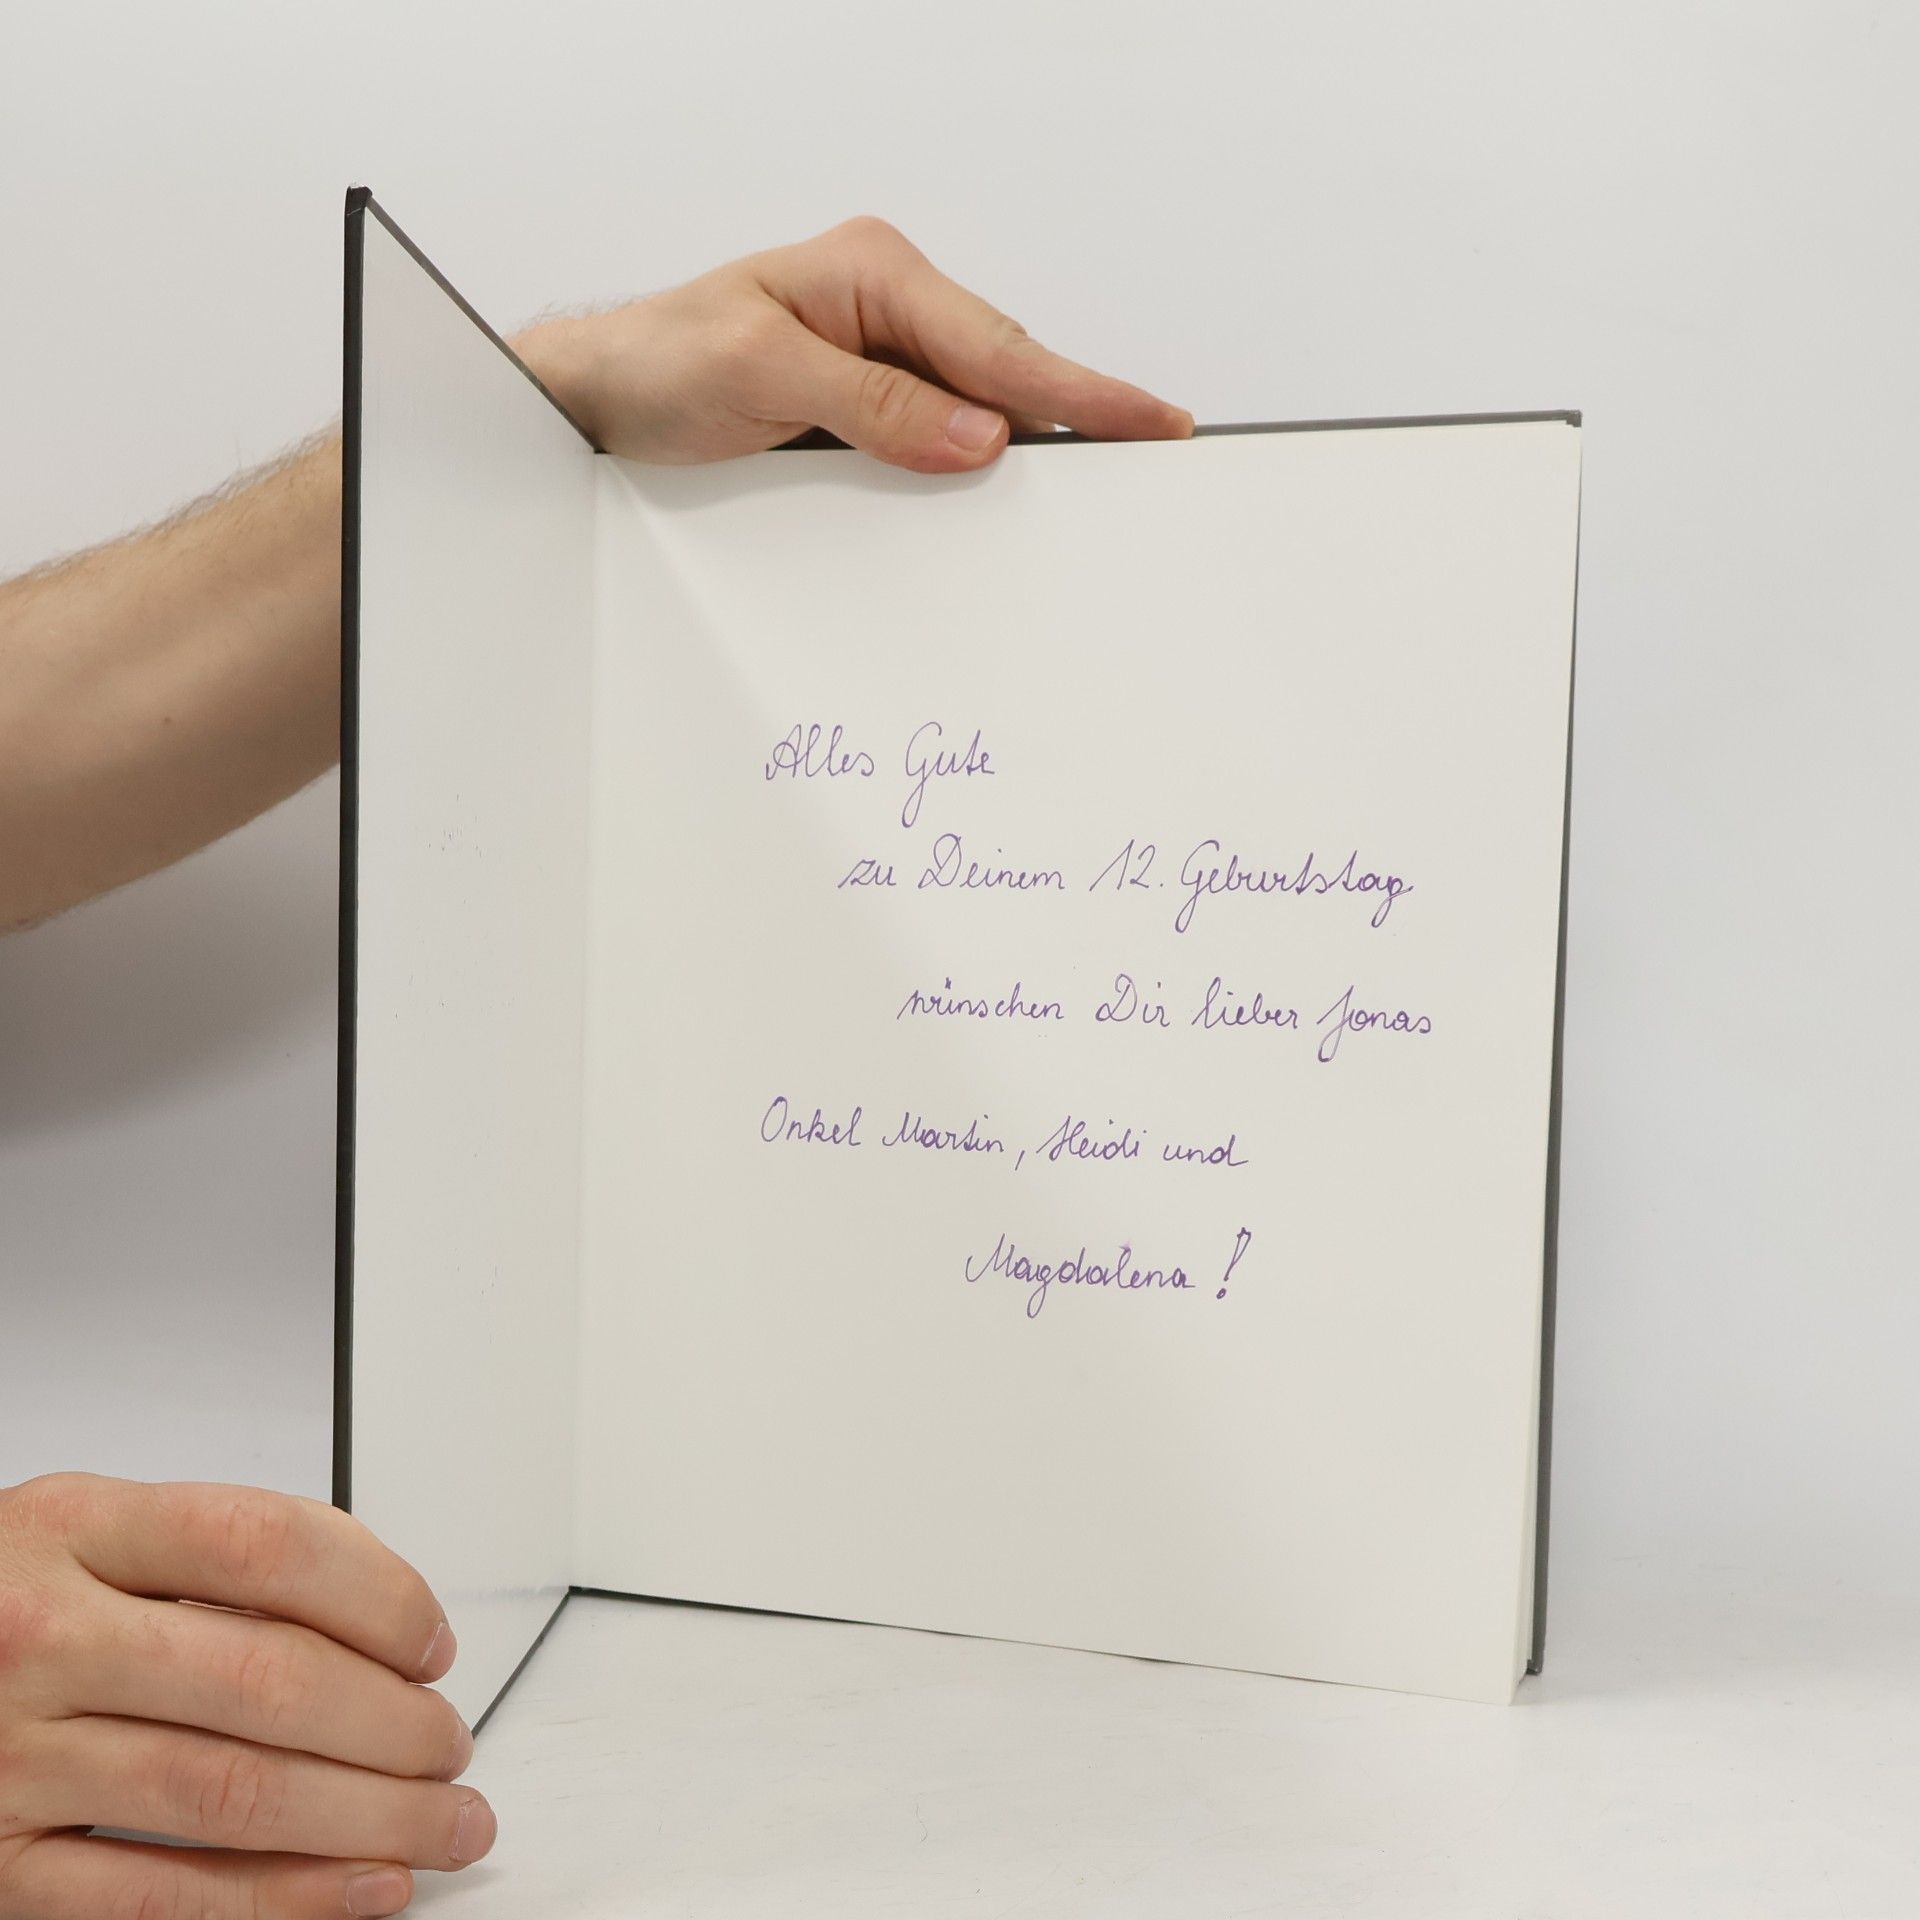 Alles Gute
zu Deinem 12. Geburtstag
wünschen Dir lieber Jonas
Onkel Martin, Heidi und
Magdalena!